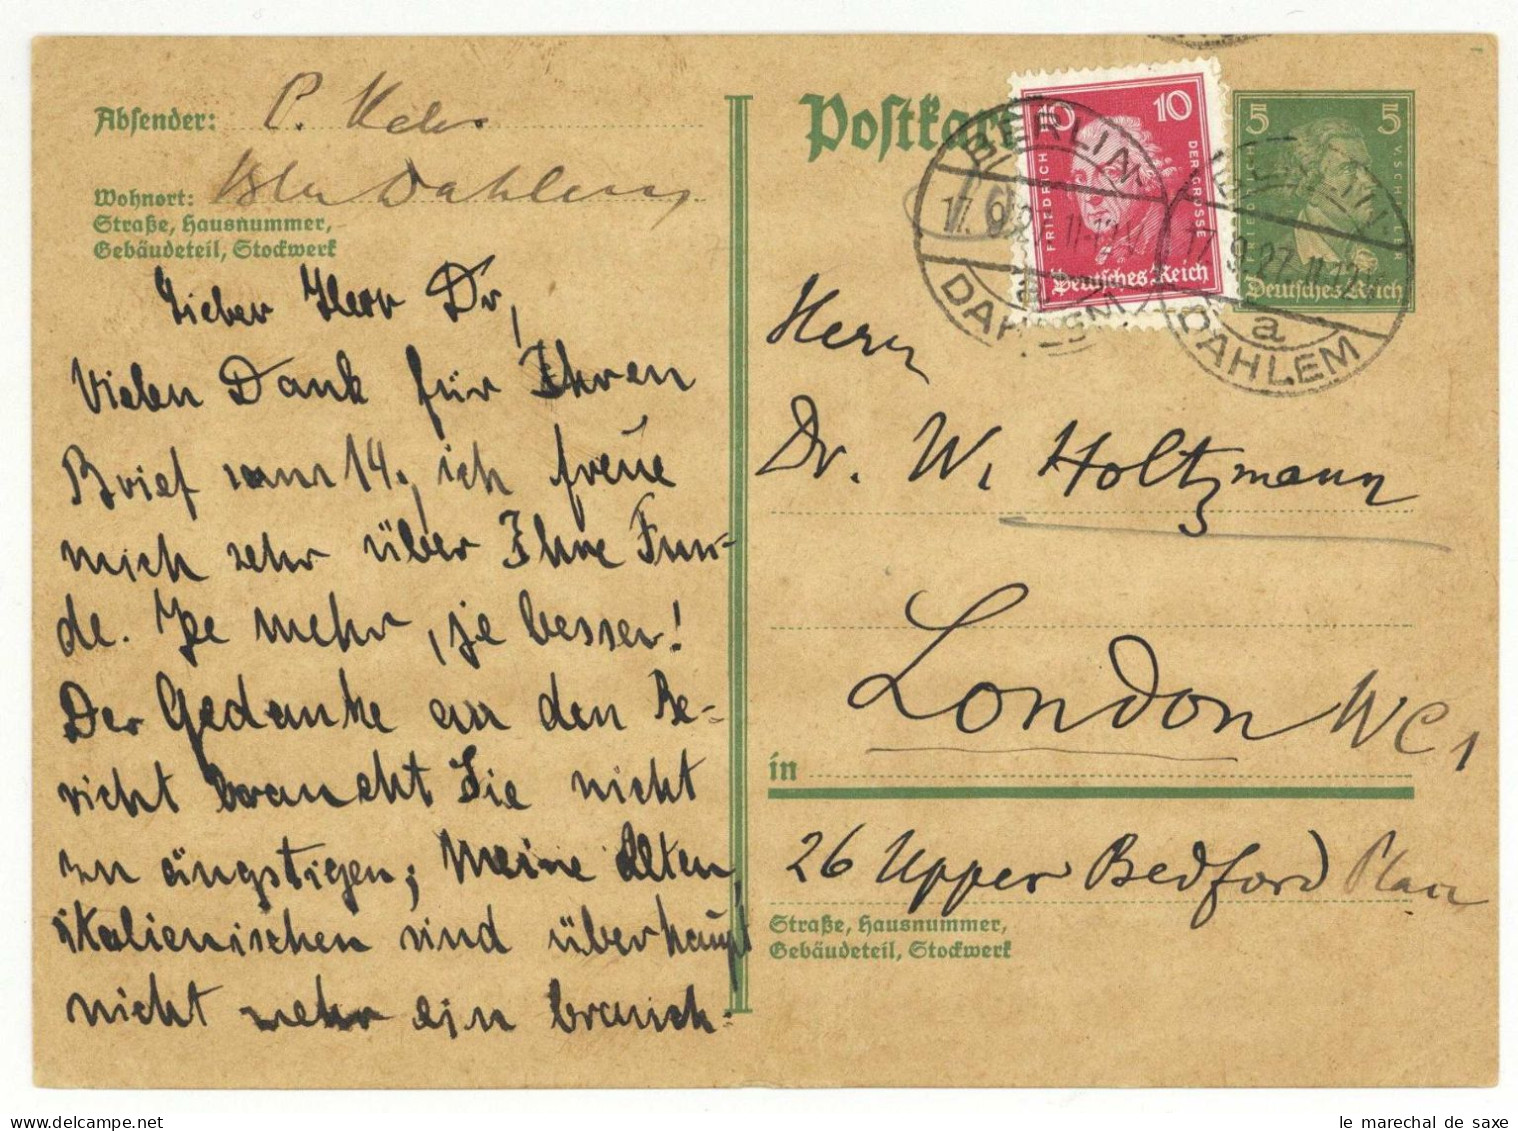 Absender: P. Kehr
Wohnort: Bln Dahlem
Straße, Hausnummer,
Gebäudeteil, Stockwerk
Lieber Herr Dr,
Vielen Dank für Ihren
Brief vom 14., ich freue
mich sehr über Ihre Fun-
de. Je mehr, je besser!
Der Gedanke an den Be-
richt braucht Sie nicht
zu ängstigen; meine alten
italienischen sind überhaupt
nicht mehr ein brauch-
Postkarte
10 10
FRIEDRICH DER GROSSE
Deutsches Reich
5 5
V. SCHILLER
Deutsches Reich
BERLIN
17.9.27. 11-12
a
DAHLEM
BERLIN
17.9.27. 11-12
a
DAHLEM
Herrn
Dr. W. Holtzmann
London WC 1
in
26 Upper Bedford Place
Straße, Hausnummer,
Gebäudeteil, Stockwerk
le marechal de saxe